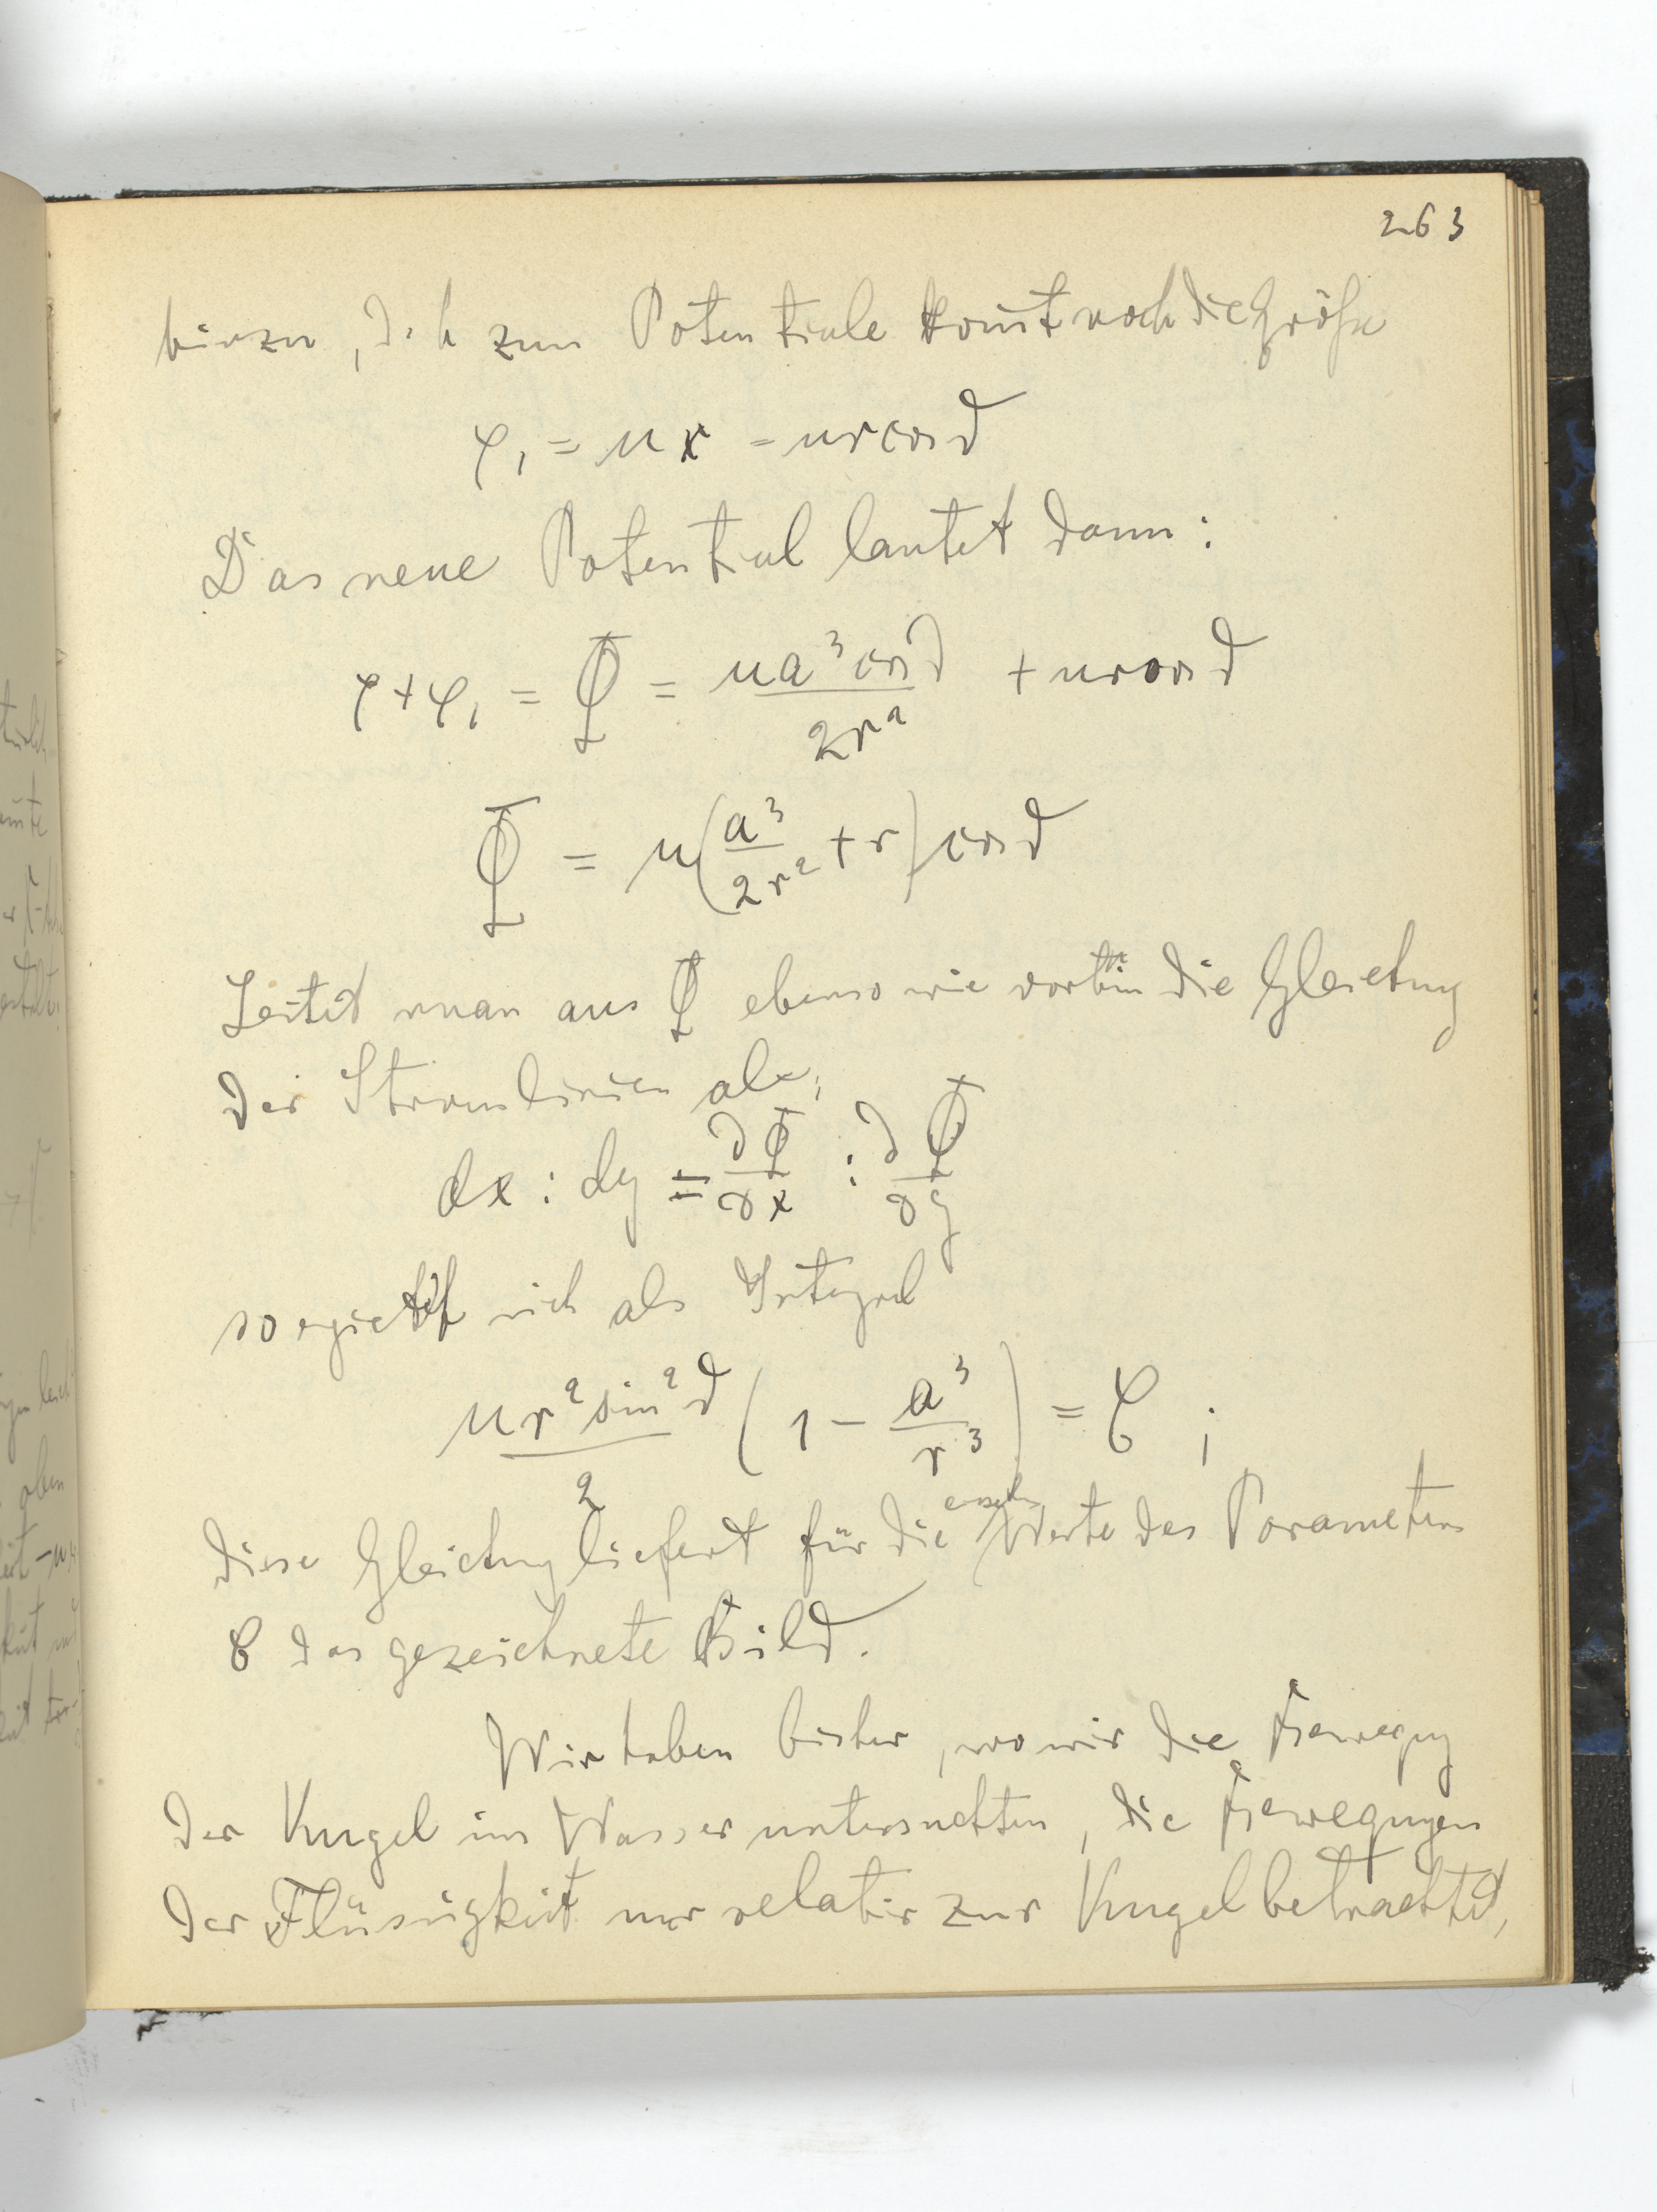 263
hinzu, d. h zum Potentiale komt noch die Größe
φ₁ = ux = ur cos ϑ
Das neue Potential lautet dann:
φ + φ₁ = Φ = ua³ cos ϑ / 2r² + ur cos ϑ
Φ = u(a³/2r² + r) cos ϑ
Leitet man aus Φ ebenso wie vorhin die Gleichung
der Stromlinien ab,
dx : dy = ∂Φ/∂x : ∂Φ/∂y
so ergiebt sich als Integral
ur² sin² ϑ / 2 (1 − a³/r³) = C ;
diese Gleichung liefert für die einzelnen Werte des Parameters
C das gezeichnete Bild.
Wir haben bisher, wo wir die Bewegung
der Kugel im Wasser untersuchten, die Bewegungen
der Flüssigkeit nur relativ zur Kugel betrachtet,